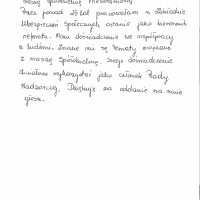 naszej Spółdzielni Mieszkaniowej
Przez ponad 25 lat pracowałam w Zakładzie
Ubezpieczeń Społecznych ostatnio jako kierownik
referatu. Mam doświadczenie we współpracy
z ludźmi. Znane mi są tematy związane
z naszą Spółdzielnią. Swoje doświadczenie
chciałabym wykorzystać jako członek Rady
Nadzorczej. Dziękuję za oddanie na mnie
głosu.